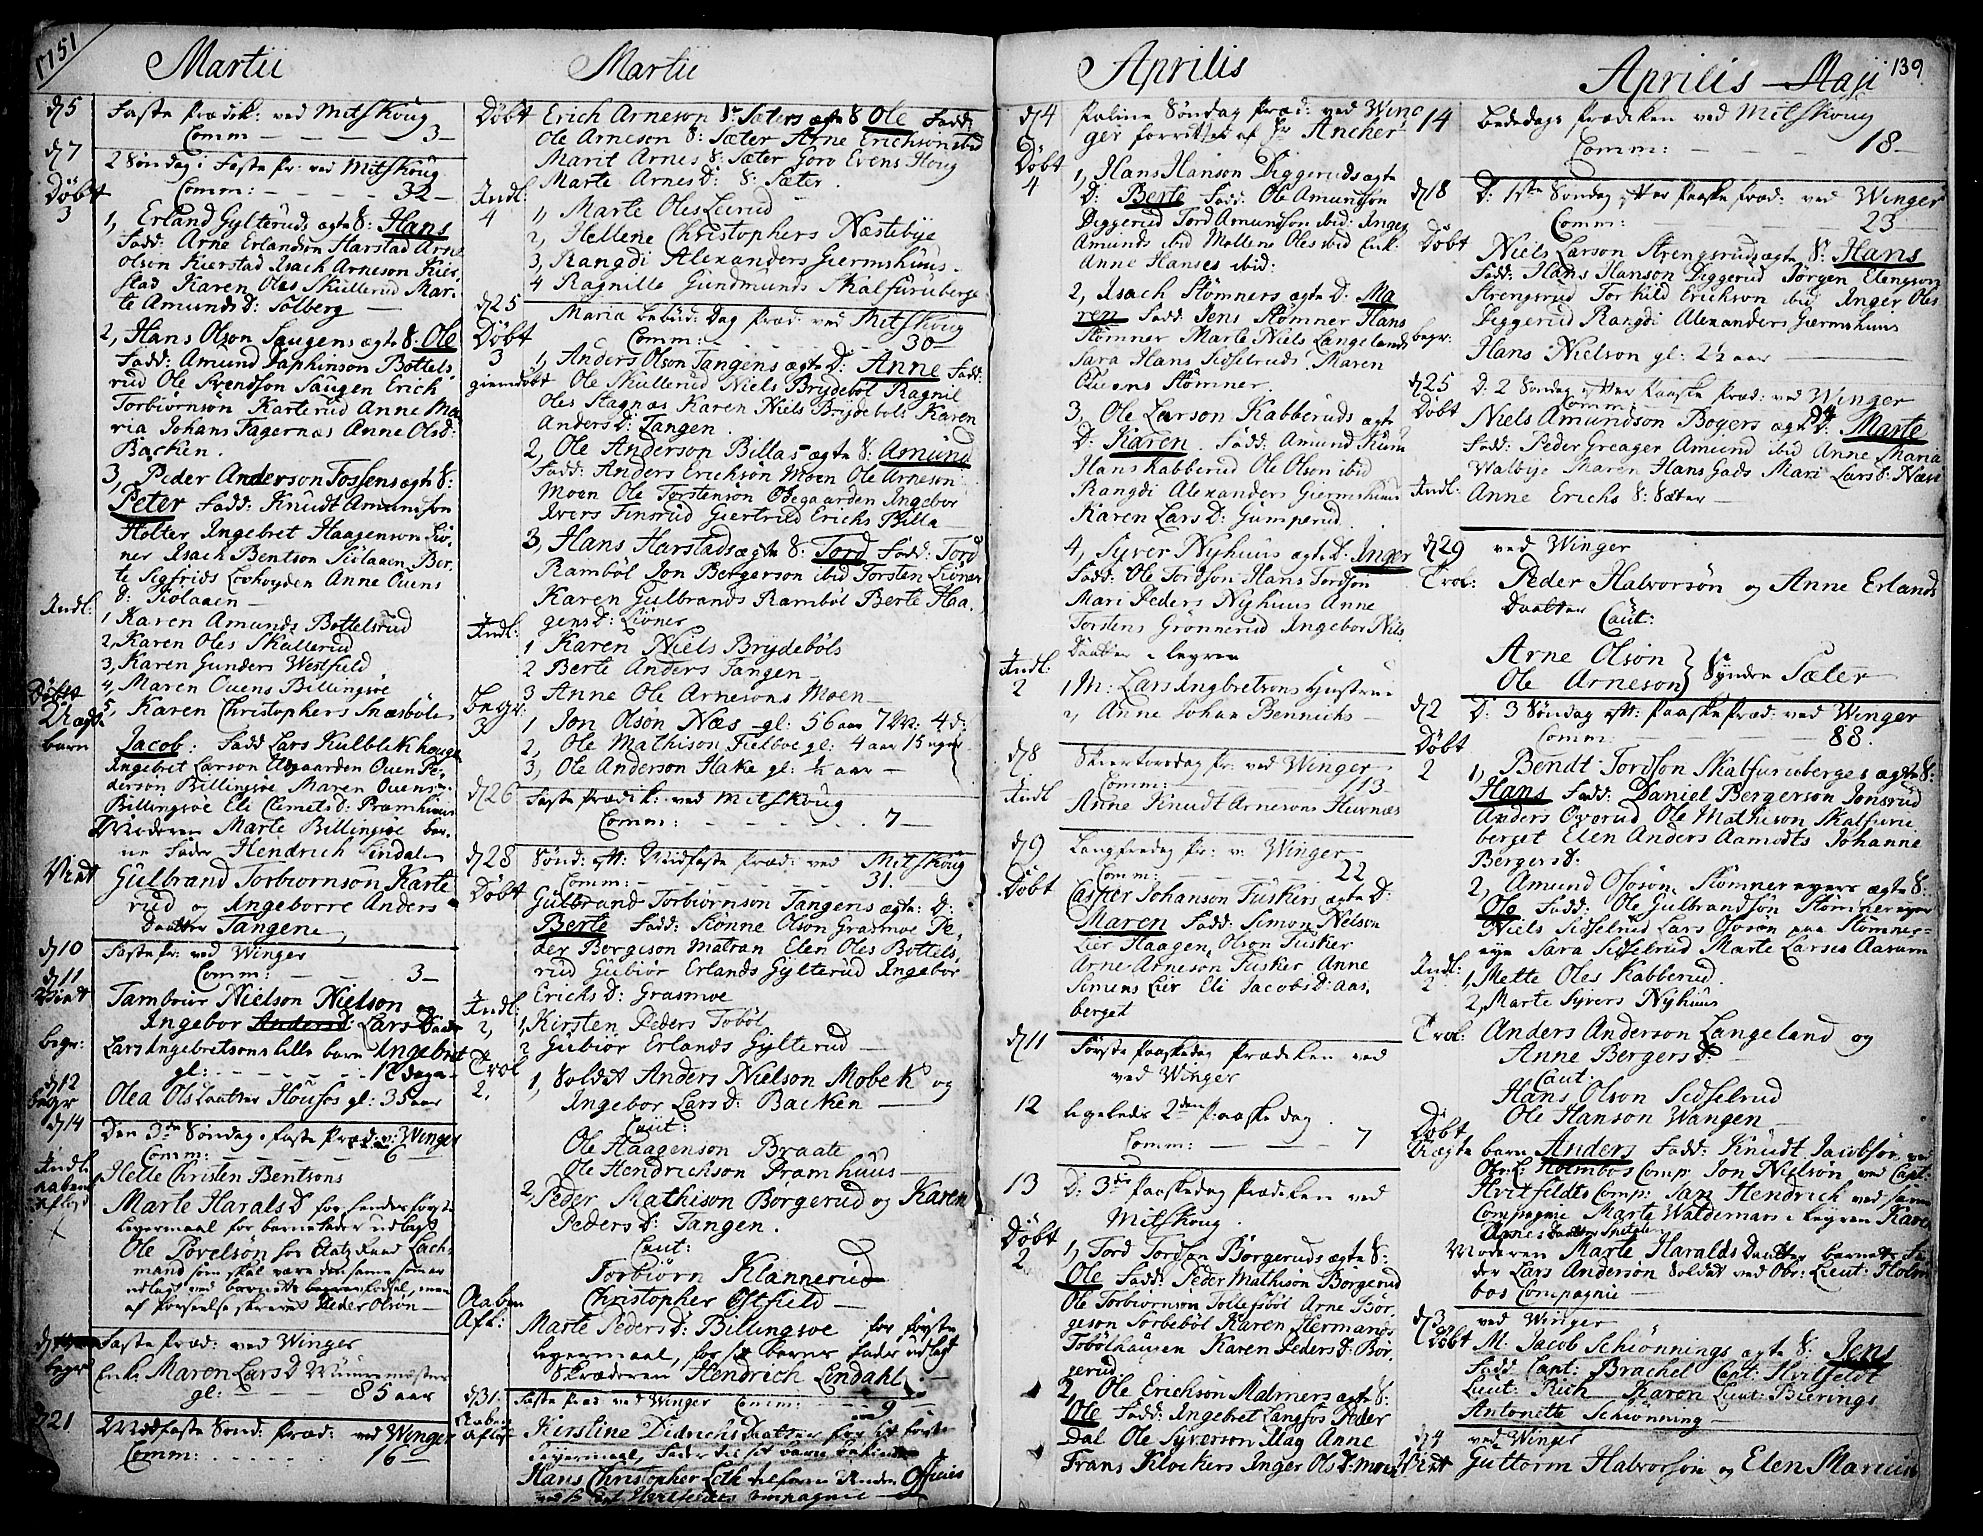 1751
Martii
d 5 Faste Prædik: ved Mitskoug
Comm - - - 3 -
d 7 2 Søndag i Faste Pr: ved Mitskoug
Comm: - - - 32 -
Döbt
3
1, Erland Gylteruds ægte S: Hans
Fadd: Arne Erlandson Harstad Arne
Olson Kierstad Isach Arneson Kier,
stad Karen Oles Skullerud Mar,
te Amunds D: Solberg -
2, Hans Olson Saugens ægte S: Ole
Fadd: Amund Japhinson Bottels,
rud Ole Svendson Saugen Erich
Torbiørnsøn Karterud Anne Ma
ria Johans Fagernæs Anne Ols D:
Backen.
3, Peder Anderson Fossens ægte S:
Peter Fadd: Knudt Amundson
Holter Ingebret Haagenson Liø,
ner Isach Bentson Kiolaaen Ber,
te Sigfrids Lovhoyden Anne Ouens
D: Kiolaaen -
Indl: 1 Karen Amunds Bottelsrud
2, Karen Oles Skullerud
3, Karen Gunders Westfield
4, Maren Ouens Billingsøe
5, Karen Christophers Snæsböle
Döbt
Uægte
barn
Jacob: Fadd Lars Kulblikhougen
Ingebret Larson Odgaarden Ouen Pe,
derson Billingsøe Maren Ouens
Billingsøe Eli Clemets D: Pramhuus
Moderen Marte Billingsøe bar,
ne Fader Hendrich Lindal
Viet Gulbrand Torbiørnsön Karte
rud og Ingeborre Anders
Daatter Tangene
d 10 Faste Pr: ved Winger
Comm: - - - 3 -
d 11
Viet Tambour Nielson Nielson og
Ingebor Lars Daatter
begr: Lars Ingebretsons lille barn Ingebret
gl: - - - - - 12 dage
d 12
begr Olea Ols Daatter Housøs gl: 35 aar
d 14 Den 3de Søndag i faste Præd: v: Winger
Comm: - - - 6 -
Indl. Helle Christen Bentsons
aabenb
afløst Marte Harals D for hendes første
Leyermaal for barnefader udlagt
Ole Povelsøn
mand som skal være den samme som er
udlagt ved barnets fødsel, men
af forseelse skrevet Peder Olson -
Faste Præd: ved Winger
begr Enke Maren Lars D
gl: - - - 85 aar
d 21 Midfaste Sønd: Præd: ved Winger
Comm: . . . . . . 16 -
Martii
Döbt Erich Arneson S: Sæters ægte S Ole Fadd:
Ole Arneson S: Sæter Arne Erichson ibid
Marit Arnes S: Sæter Goro Evens Houg
Marte Arnes D: S: Sæter.
Indl:
4
1, Marte Oles Leirud
2, Hellene Christophers Næstebye
3, Rangdi Alexanders Giermshuus -
4 Ragnille Gundmunds Skalfuruberge
d 25 Maria bebud: Dag Præd: ved Mitskoug
Comm: - - - - - 30 -
Döbt
3
1, Anders Olson Tangens ægte D: Anne Fadd:
Ole Skullerud Niels Brydeböl Ragnil
Oles Stagnæs Karen Niels Brydeböls Karen
Anders D: Tangen.
2, Ole Anderson Billas ægte S: Amund
Fadd: Anders Erichsøn Moen Ole Arneson
Moen Ole Torstenson Odegaarden Ingebor
Ivers Tinsrud Giertrud Erichs Billa
3, Hans Harstads ægte S: Tord Fadd: Tord
Ramböl Jon Bergerson ibid Torsten Liøner
Karen Gulbrands Ramböl Berte Haa,
gens D: Liøner
Indl: 1 Karen Niels Brydeböls
2 Berte Anders Tangen
3 Anne Ole Arnesons Moen -
Begr:
3
1 Jon Olson Næs - gl: 56 aar 7 M: 4 d:
2, Ole Mathison Fielboe gl: 4 aar 15 uger
3, Ole Anderson Hake gl: ½ aar -
d 26 Faste Prædik: ved Mitskoug
Comm: - - - - 7 -
d 28 Sønd: eft: Midfaste Præd: ved Mitskoug
Comm: - - - - 31.
Döbt Gulbrand Torbiørnson Tangens ægte: D:
Berte Fadd: Stønne Olson Grasmoe Pe,
der Borgeson Matran Elen Oles Bottels,
rud Gubiør Erlands Gylterud Ingebor
Erichs D: Grasmoe
Indl:
2, 1, Kirsten Peders Toböl
2 Gubiør Erlands Gylterud -
Trol
2, 1, Soldat Anders Nielson Mobek og
Ingebor Lars D: Backen -
Caut:
Ole Haagenson Braate
Ole Hendrickson Pramhuus -
2, Peder Mathison Borgerud og Karen
Peders D: Tangen.
Caut:
Torbiørn Klannerud
Christopher Østfield -
Aaben
Afl: Marte Peders D: Billingsoe for første
Leyermaal, for sit barns fader udlagt
Skræderen Hendrich Lindahl -
d 31. Faste Præd ved Winger Comm: - - 9 -
Kirstine Didrichs Daatter for sit første
Leyermaal,
Hans Christopher Leth
Aprilis
d 4 Palme Søndag Præd: ved Win
ger forrettet af Hr Ancher
Döbt
4
1, Hans Hanson Diggeruds ægte
D: Berte Fadd: Ole Amundson
Diggerud Tord Amundson ibid: Inger
Amunds ibid Mallene Oles ibid Enk.
Anne Hanses ibid:
2, Isach Stømners ægte D: Ma
ren Fadd: Jens Stømner Hans
Stømner Marte Niels Langelands
Sara Hans Sidselruds Maren
Ouens Stømner.
3, Ole Larson Kabberuds ægte
D: Karen. Fadd: Amund Kum
Hans Kabberud Ole Olson ibid
Rangdi Alexanders Giermshuus
Karen Lars D: Gumperud.
4, Syver Nyhuus ægte D. Inger
Fadd: Ole Tordson Hans Tordson
Mari Peders Nyhuus Anne
Torstens Grønnerud Ingebor Niels
Daatter i leyren
Indl:
2 1 M: Lars Ingbretsons Hustrue
2, Anne Johan Bennichs -
d 8 Skiertorsdag Pr: ved Winger
Comm: - - - 113 -
Indl Anne Knudt Arnesons Huvnæs
d 9 Langfredag Pr: v: Winger
Comm: - - - 22
Döbt Casper Johanson Fuskers ægte D:
Maren Fadd: Simon Nelson
Lier Haagen Olson Fusker
Arne Arneson Fusker Anne
Simens Lier Eli Jacobs D: Aas,
berget
d 11 Første Paaskedag Prædiken ved
ved Winger
12 ligeleds 2den Paaske dag.
Comm: - - - 7
13 D: 3die Paaskedag Prædiken ved
Mitskoug.
Döbt
2
1, Tord Tordson Borgeruds ægte S:
Ole Fadd: Peder Mathison Borgerud
Ole Torbiornson Tollefsböl Arne Bør,
geson Torbeböl Karen Hermands
Tobölhaugen Karen Peders D: Bor,
gerud.
2, Ole Erichsön Malmers ægte S:
Ole Fadd: Ingebret Langfos Peder
Dal Ole Syverson Mag Anne
Frans Klockers Inger Ols D: moen
Aprilis Maji 139
14 Bededags Prædiken ved Mitskoug
Comm: - - - 18 -
d 18 D: 1ste Søndag efter Paaske Præd: ved Winger
Comm: - - - 23 -
Döbt Niels Larson Strengsruds ægte S: Hans
Fadd: Hans Hanson Diggerud Jörgen Elengson
Strengsrud Torkild Erickson ibid Inger Oles
Diggerud Rangdi Alexanders Giermshuus
begr: Hans Nielson gl: 2½ aar -
d 25 D: 2 Søndag efter Paaske Præd: ved Winger
Comm: - - - 24
Döbt Niels Amundson Bogers ægte D: Marte
Fadd: Peder Greager Amund ibid Anne Maria
Walbye Maren Hans Gads Mari Lars D: Næss
Indl: Anne Erichs S: Sæter -
d 29 ved Winger
Trol: Peder Halvorsön og Anne Erlands
Daatter
Caut:
Arne Olson
Ole Arneson } Syndre Sæter
d 2 D: 3 Søndag eft: Paaske Præd: ved Winger
Comm: - - - 88.
Döbt
2 1, Bendt Tordson Skalfuruberges ægte S:
Hans Fadd: Daniel Bergerson Jonsrud
Anders Overud Ole Mathison Skalfuru
berget Elen Anders Aamodts Johanne
Bergers D:
2, Amund Olosøn Stømner eyers ægte S:
Ole Fadd: Ole Gulbrandsön Stømner eyer
Niels Sidselrud Lars Oloson paa Stømner=
eye Sara Sidselrud Marte Larses Aarum
Indl:
2 1, Mette Oles Kabberud.
2, Marte Syvers Nyhuus
Trol: Anders Anderson Langeland og
Anne Bergers D:
Caut:
Hans Olson Sidselrud
Ole Hanson Wangen -
Döbt
Uægte barn Anders Fadd: Knudt Jacobson ved
Obr: L: Holmboes Comp: Jon Nielson ved Capt:
Hvitfeldts Comp: Jan Hendrich ved samme
Compagnie Marte Waldemars i leyren Karen
Arnes Daatter
Moderen Marte Haralds Daatter barnets Fa
der Lars Anderson Soldat ved Obr: Lieut: Holm
boes Compagnie -
d 3 ved Winger
Döbt M: Jacob Schiønnings ægte S: Jens
Fadd Capt: Brachel Capt: Hvitfeldt
Lieut: Rich Karen Lieut: Bierings
Antonette Schiønning -
d 4 ved Winger
Viet Guttorm Halvorsön og Elen Marcus